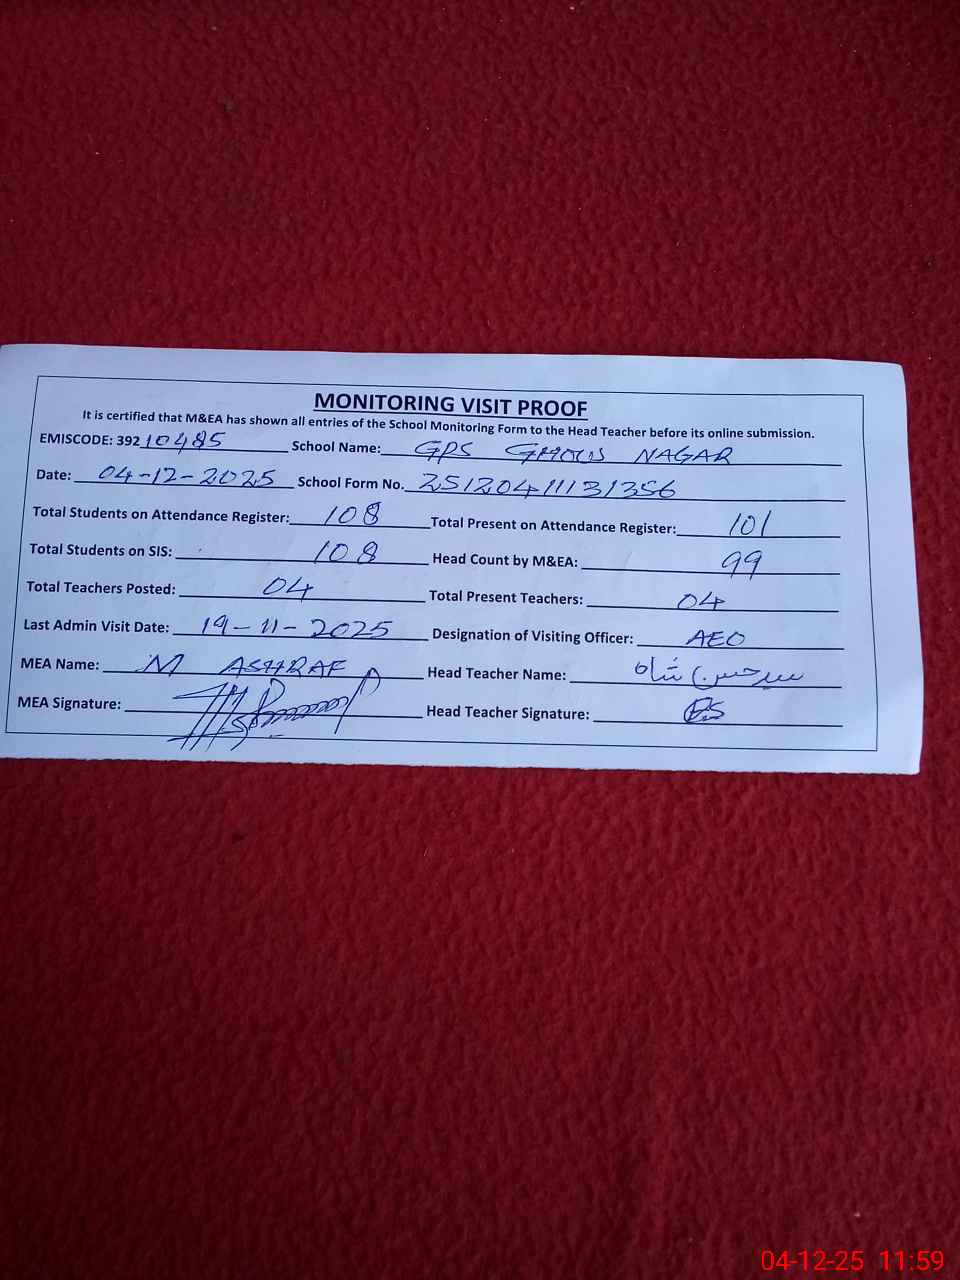 MONITORING VISIT PROOF
It is certified that M&EA has shown all entries of the School Monitoring Form to the Head Teacher before its online submission.
EMISCODE: 39210485 School Name: GPS GHOUS NAGAR
Date: 04-12-2025 School Form No. 25120411131356
Total Students on Attendance Register: 108 Total Present on Attendance Register: 101
Total Students on SIS: 108 Head Count by M&EA: 99
Total Teachers Posted: 04 Total Present Teachers: 04
Last Admin Visit Date: 19-11-2025 Designation of Visiting Officer: AEO
MEA Name: M ASHRAF Head Teacher Name: شاہ
MEA Signature: Head Teacher Signature:
04-12-25 11:59